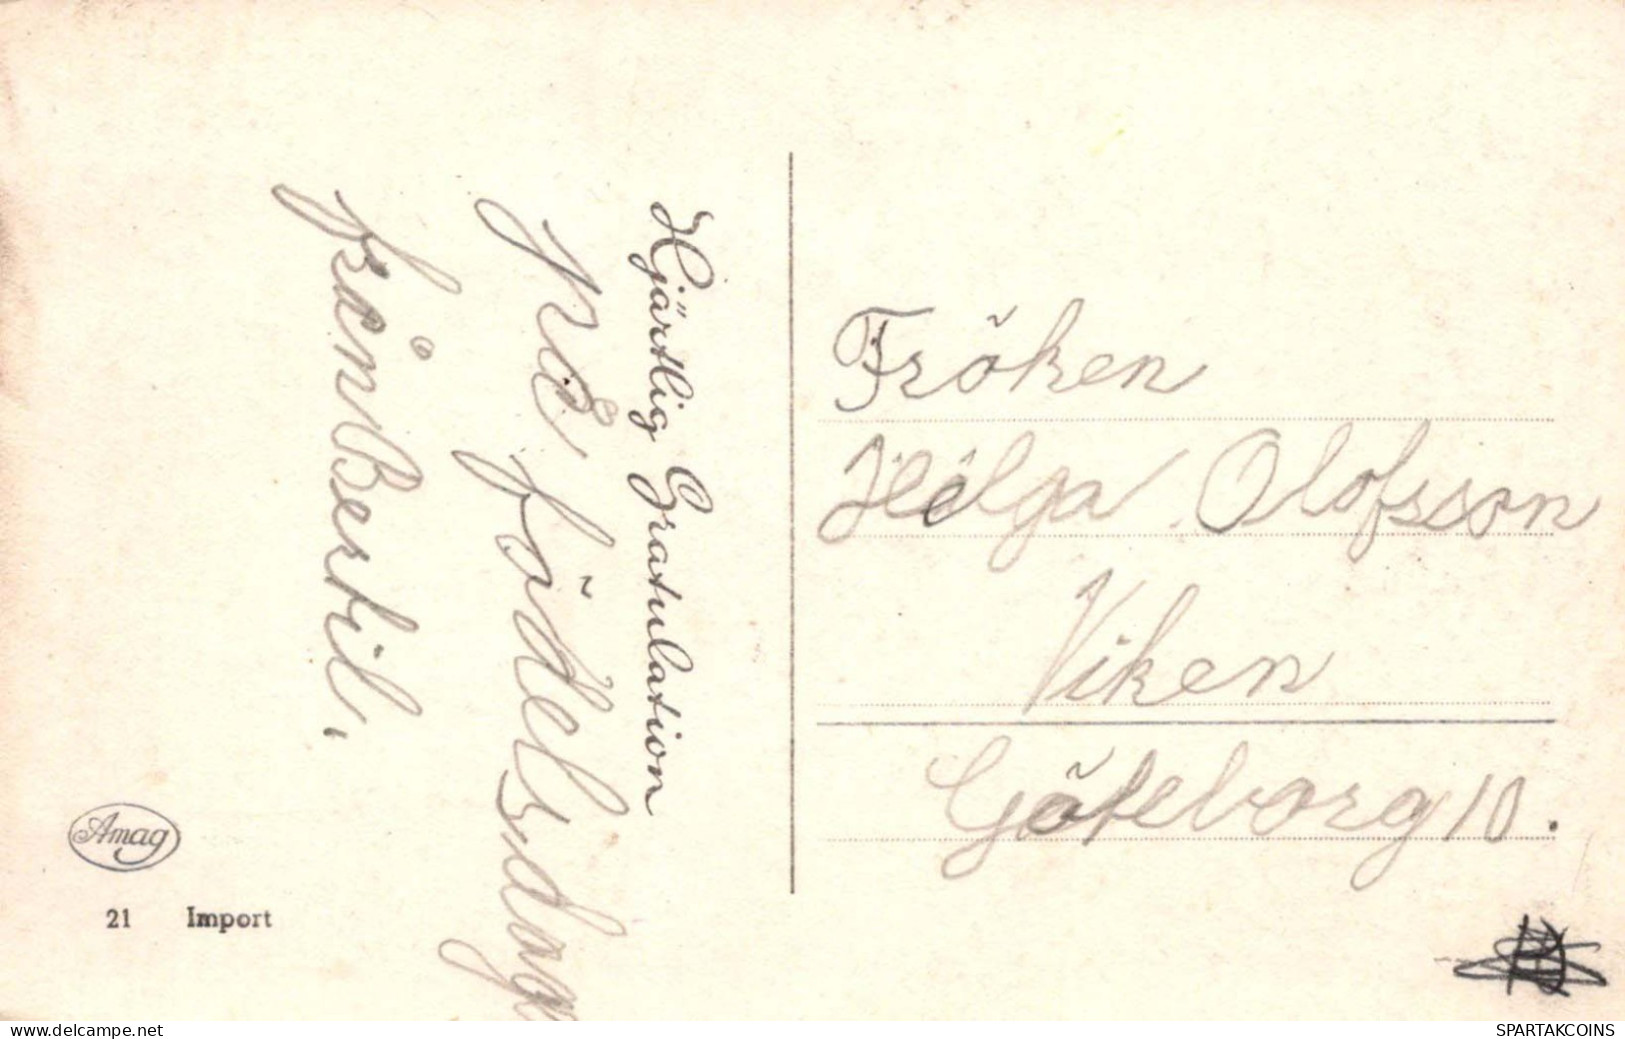 Hjärtlig Gratulation
på födelsdag
från Bertil.
Amag
21 Import
Fröken
Helga Olofsson
Viken
Göteborg 10.
www.delcampe.net
SPARTAKCOINS